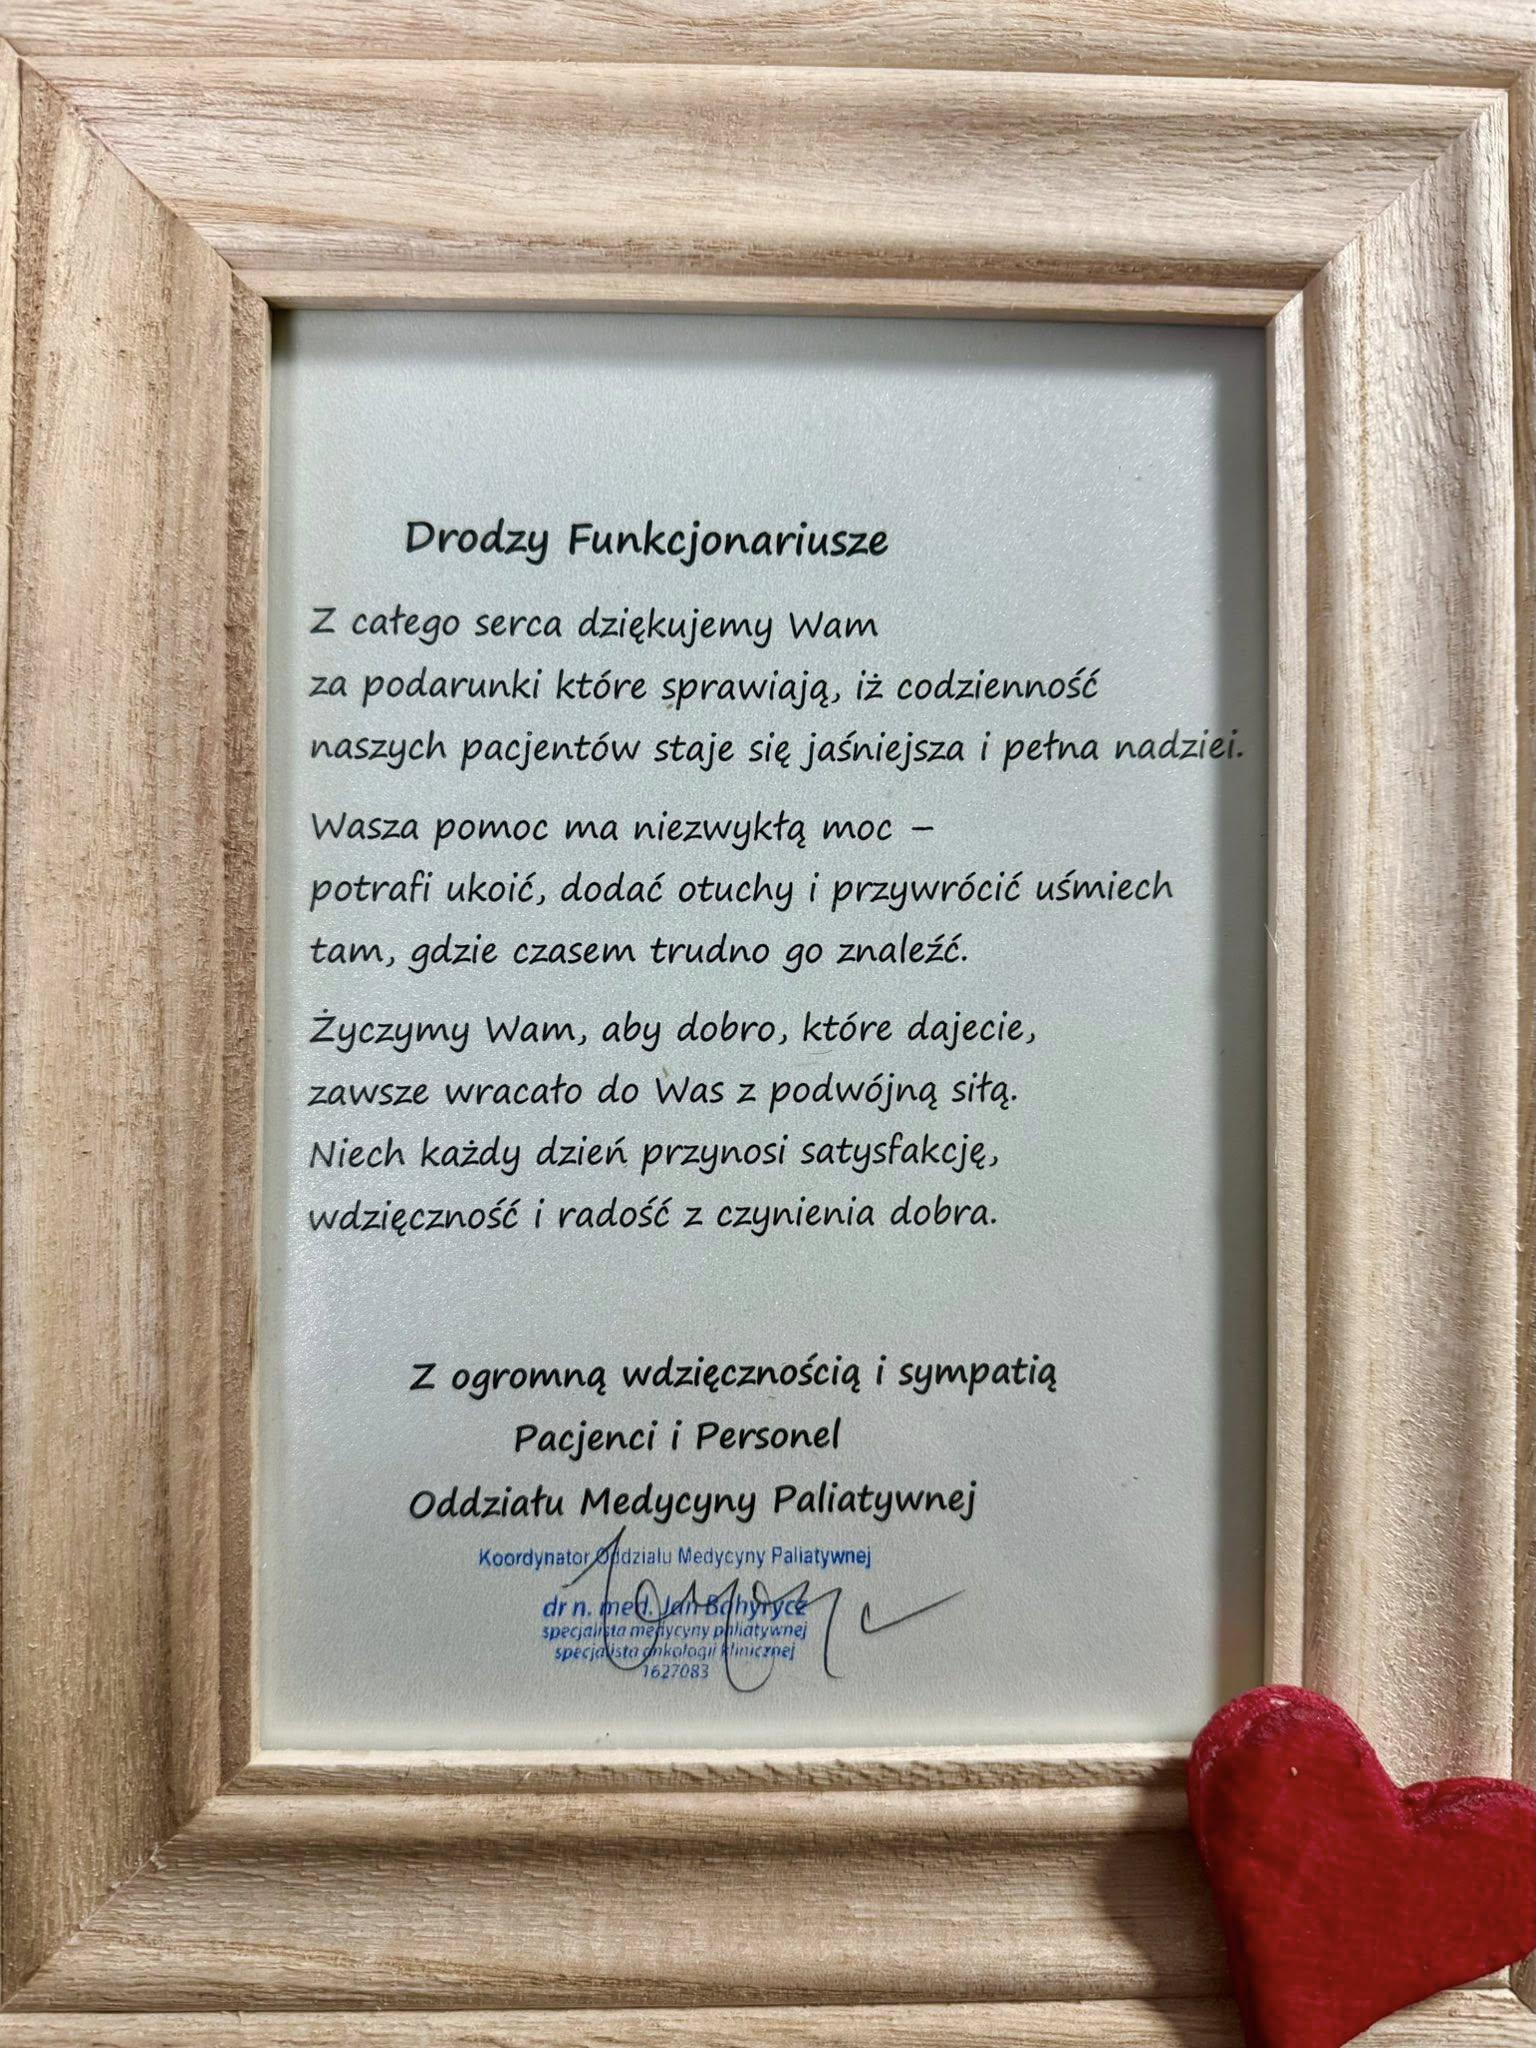 Drodzy Funkcjonariusze
Z całego serca dziękujemy Wam
za podarunki które sprawiają, iż codzienność
naszych pacjentów staje się jaśniejsza i pełna nadziei.
Wasza pomoc ma niezwykłą moc –
potrafi ukoić, dodać otuchy i przywrócić uśmiech
tam, gdzie czasem trudno go znaleźć.
Życzymy Wam, aby dobro, które dajecie,
zawsze wracało do Was z podwójną siłą.
Niech każdy dzień przynosi satysfakcję,
wdzięczność i radość z czynienia dobra.
Z ogromną wdzięcznością i sympatią
Pacjenci i Personel
Oddziału Medycyny Paliatywnej
Koordynator Oddziału Medycyny Paliatywnej
dr n. med. Jan
specjalista medycyny paliatywnej
specjalista onkologii klinicznej
1627083